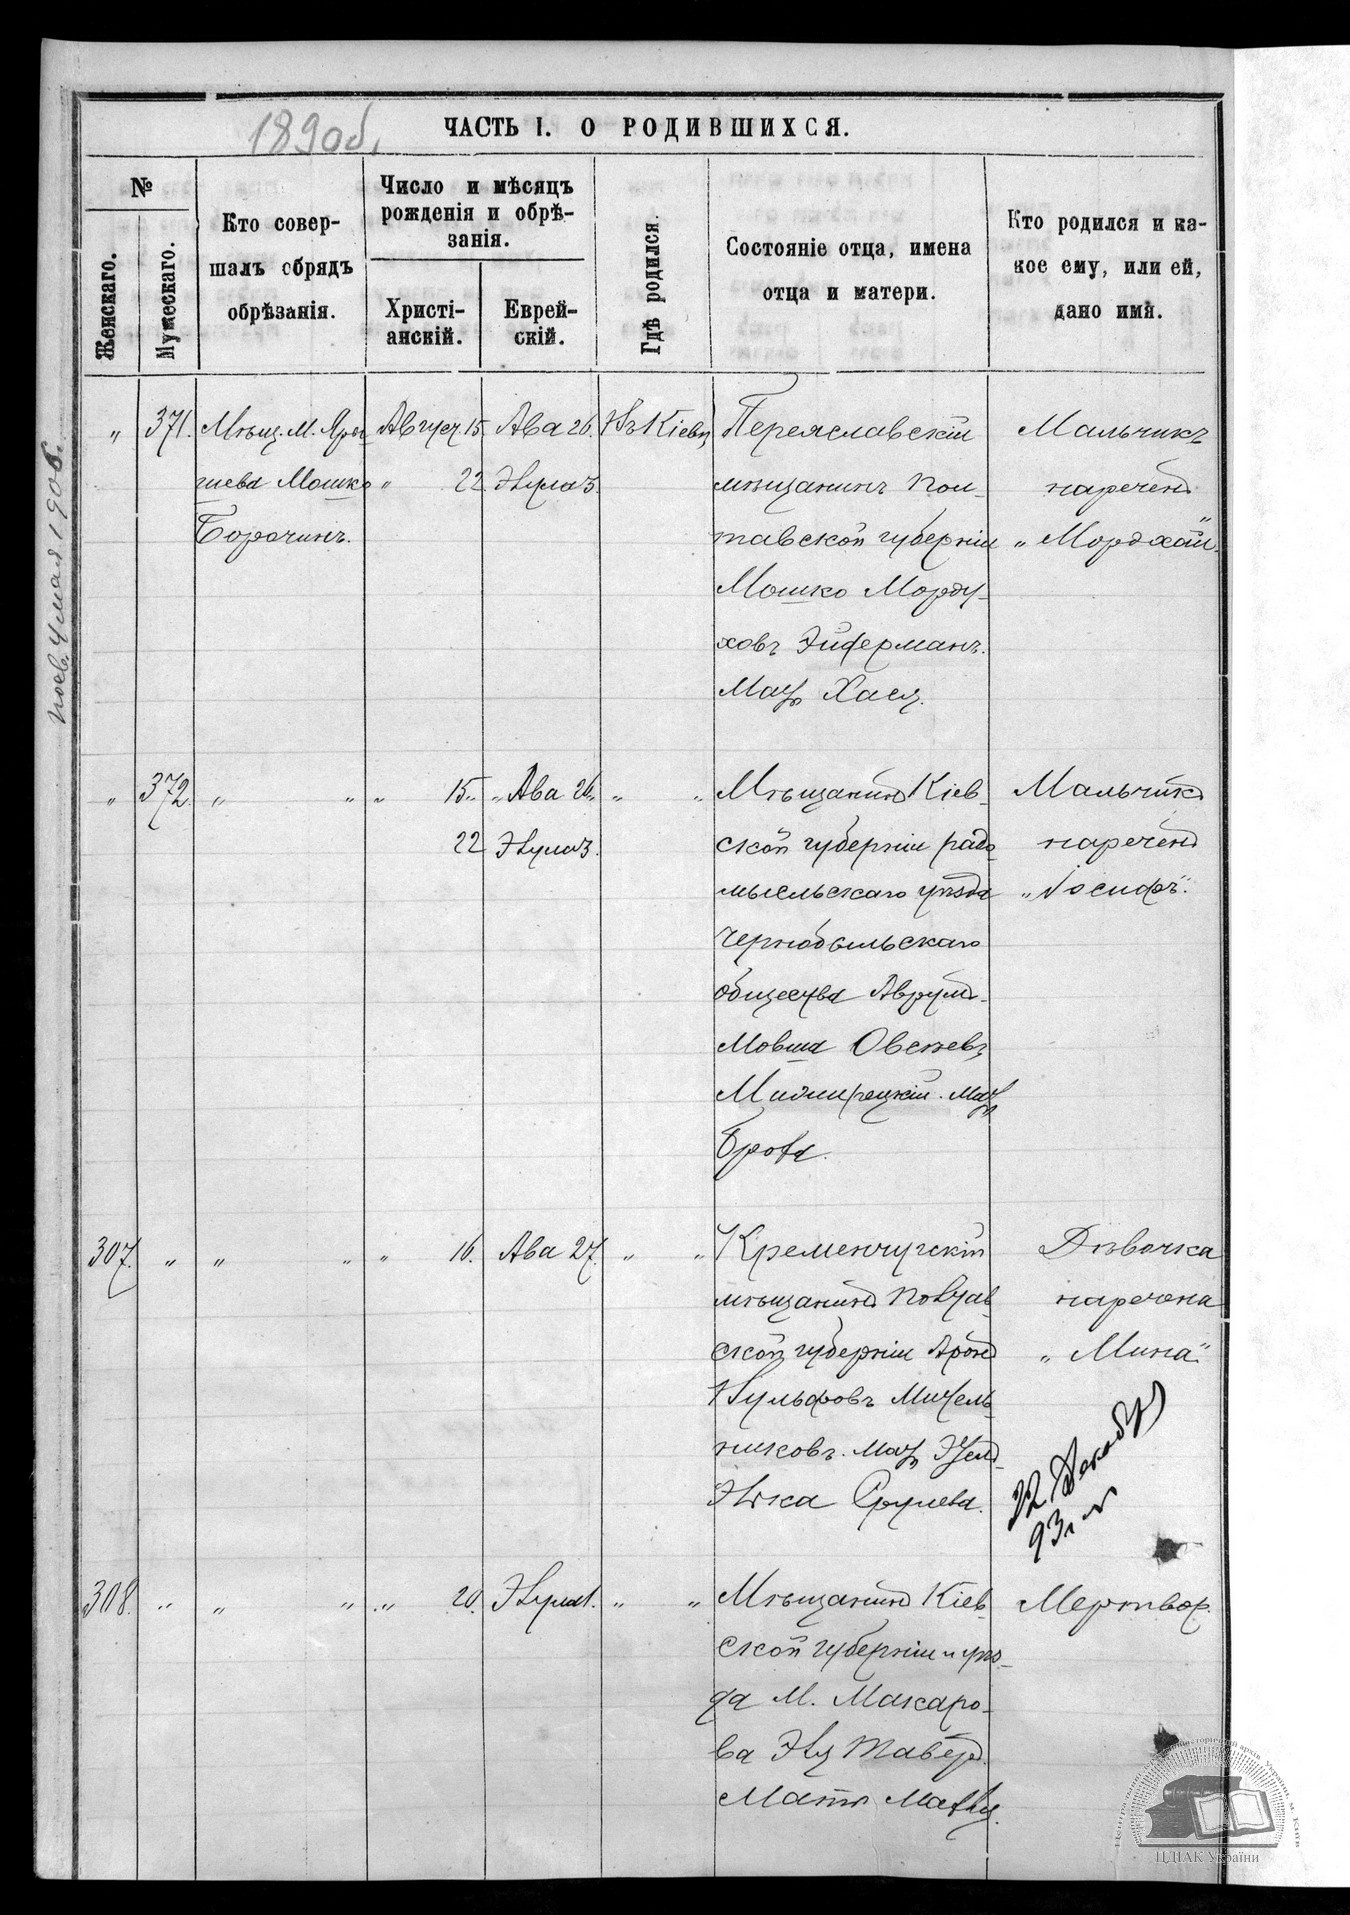 1890б.
ЧАСТЬ I. О РОДИВШИХСЯ.
№
Женскаго.
Мужескаго.
Кто совер-
шалъ обрядъ
обрѣзанія.
Число и мѣсяцъ
рожденія и обрѣ-
занія.
Христі-
анскій.
Еврей-
скій.
Гдѣ родился.
Состояніе отца, имена
отца и матери.
Кто родился и ка-
кое ему, или ей,
дано имя.
„ 371. Мѣщ. М. Яры-
шева Мошко
Борочинъ.
Август. 15
„ 22
Ава 26.
Элула 3.
Въ Кіевѣ
Переяславскій
мѣщанинъ Пол-
тавской губерніи
Мошко Морду-
ховъ Эйферманъ.
Мать Хася.
Мальчикъ
нареченъ
„Мордхай„
„ 372. „ „
„ 15.
22
„ Ава 26.
Элула 3.
„ „
Мѣщанинъ Кіев-
ской губерніи радо-
мысльскаго уѣзда
Чернобыльскаго
общества Аврумъ-
Мовша Овсеевъ
мать
Мальчикъ
нареченъ
„Іосифъ“.
307. „ „ „
„ 16. Ава 27. „ „
Кременчугскій
мѣщанинъ Полтав-
ской губерніи Аронъ
Вульфовъ Мисель-
никовъ. Мать
Срулева.
Дѣвочка
наречена
„Мина“.
22 Декабря
93 г.
308. „ „ „
„ 20. Элула 1. „ „
Мѣщанинъ Кіев-
ской губерніи и уѣз-
да М. Макаро-
ва Эля Таверъ.
Мать
Мертвор.
ЦДІАК України